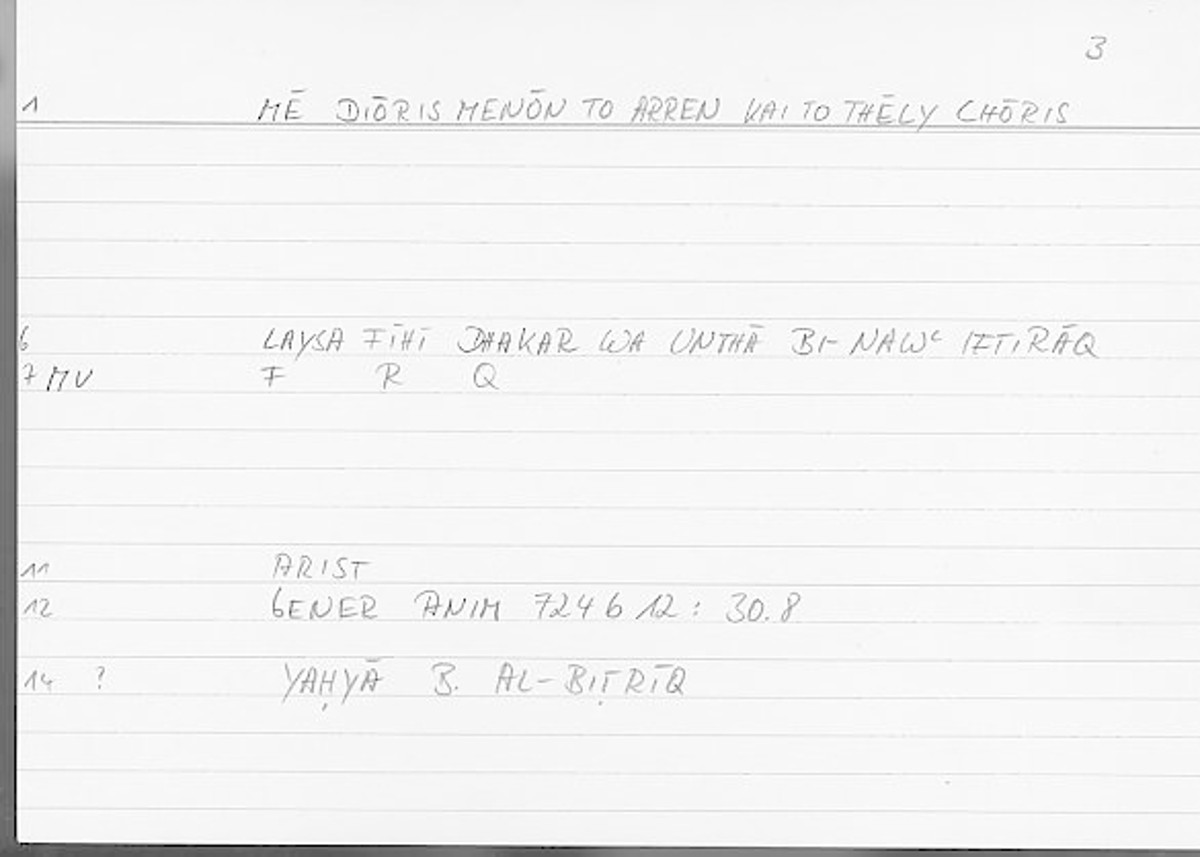 3
1 MĒ DIŌRISMENŌN TO ARREN KAI TO THĒLY CHŌRIS
6 LAYSA FĪHĪ DHAKAR WA UNTHĀ BI-NAWʿ IFTIRĀQ
7 MV F R Q
11 ARIST
12 GENER ANIM 724 b 12 : 30.8
14 ? YAḤYĀ B. AL-BIṬRĪQ